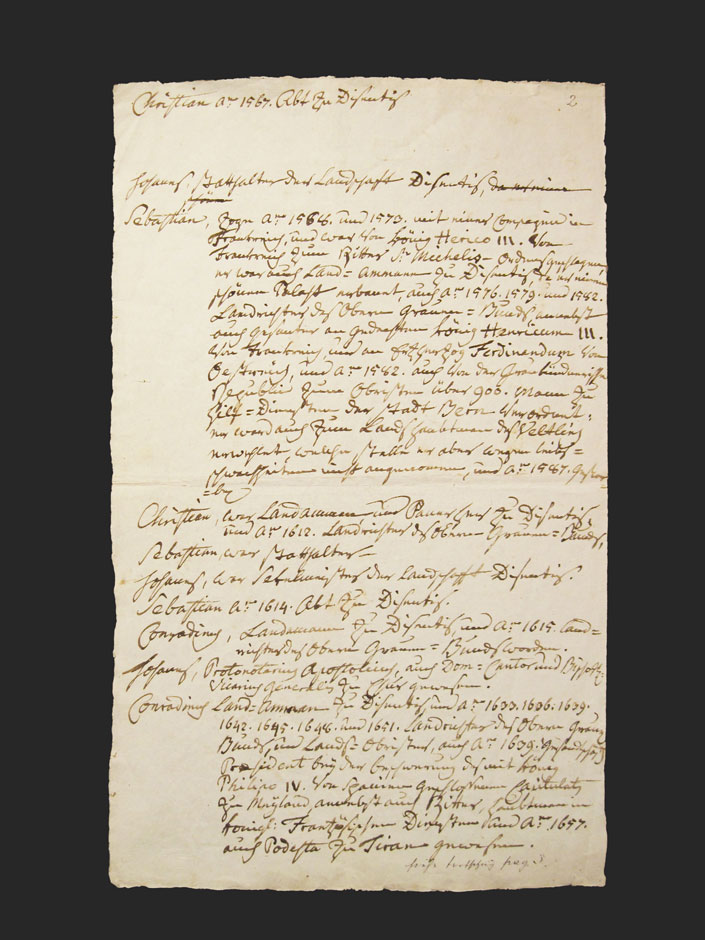 Christian Aº 1567. Abt zu Disentis
2
Johans, Statthalter der Landschafft Disentis,
Sebastian, Zoge Aº 1568. und 1573. mit einer Compagnie in
Frankreich, und war von König Henrico III. von
Frankreich zum Ritter St. Michelis-Ordens geschlagen
er war auch Land-Ammann zu Disentis, einen
schönen Palast erbauet, auch Aº 1576. 1579. und 1582.
Landrichter des Obern Grauen-Bunds, anebst
auch Gesandter an gedachten König Henricum III.
von Frankreich, und an Ertzherzog Ferdinandum von
Oesterreich, und Aº 1582. auch von der Graubündnerischen
Republic zum Obristen über 900. Mann zu
Hilf-Diensten der Stadt Bern verordnet;
er ward auch zum Landshaubtman des Veltlins
erwehlet, welche Stelle er aber wegen Leibs-
schwachheiten nicht angenommen, und Aº 1587. gestor-
-ben
Christian, war Landamman und Panerherr zu Disentis,
und Aº 1612. Landrichter des Obern Grauen-Bunds,
Sebastian, war Statthalter
Johans, war Sekelmeister der Landschafft Disentis.
Sebastian Aº 1614. Abt zu Disentis.
Conradinus, Landamann zu Disentis, und Aº 1615. Land-
richter des Obern Grauen-Bunds worden.
Johans, Protonotarius Apostolicus, auch Dom-Cantor und Bischofl.
Vicarius Generalis zu Chur gewesen.
Conradinus Land-Amman zu Disentis, und Aº 1633. 1636. 1639.
1642. 1645. 1648. und 1651. Landrichter des Obern Grauen
Bunds, und Lands-Obrister, auch Aº 1639. Gesandschafts
Præsident bey der Beschwerung des mit König
Philipo IV. von Spanien geschlossenen Capitulats
zu Meyland, anebst auch Ritter, Haubtman in
Königl: Französischen Diensten und Aº 1657.
auch Podesta zu Tiran gewesen.
pag. 3.